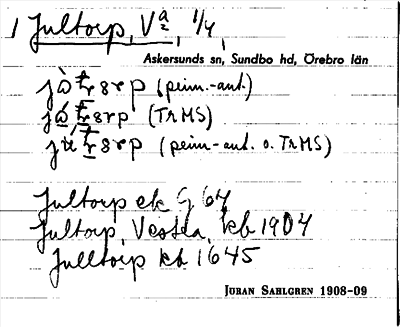 1 Jultorp, Va, 1/4,
Askersunds sn, Sundbo hd, Örebro län
(peim.-ant.)
(TrMS)
(peim-ant. o. TrMS)
Jultorp ek G 67
Jultorp, Vestra, kb 1904
Julltorp kb 1645
JÖRAN SAHLGREN 1908-09